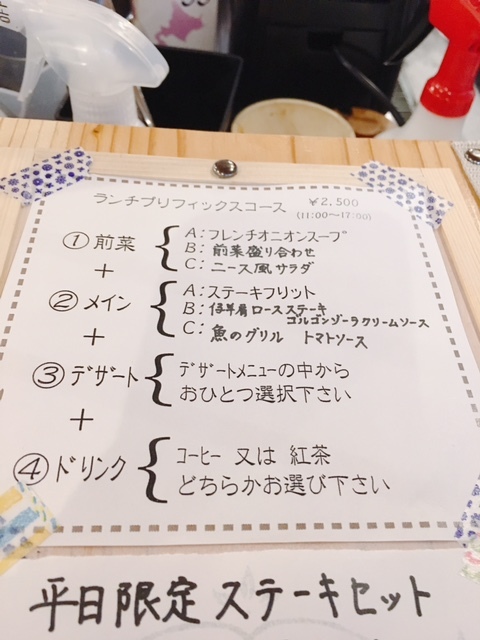 ランチプリフィックスコース ¥2,500
(11:00〜17:00)
①前菜
A:フレンチオニオンスープ
B:前菜盛り合わせ
C:ニース風サラダ
+
②メイン
A:ステーキフリット
B:仔羊肩ロースステーキ
ゴルゴンゾーラクリームソース
C:魚のグリル トマトソース
+
③デザート
デザートメニューの中から
おひとつ選択下さい
+
④ドリンク
コーヒー 又は 紅茶
どちらかお選び下さい
平日限定 ステーキセット